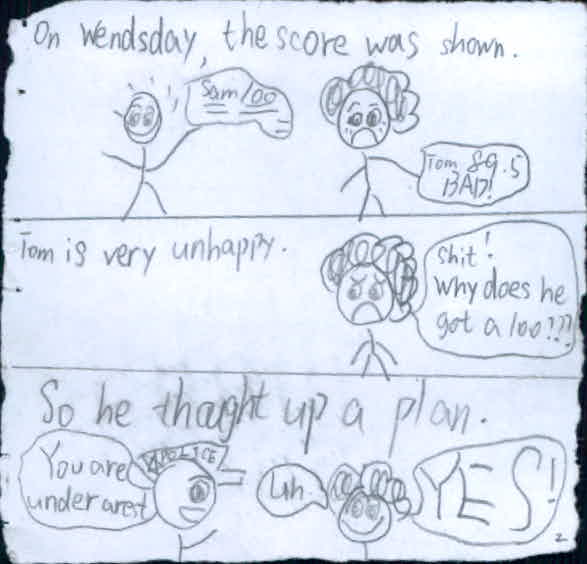 On Wendsday, the score was shown.
Sam 100
Tom 89.5
BAD!
Tom is very unhappy.
Shit!
Why does he
got a 100???
So he thaght up a plan.
POLICE
You are
under arest
Uh
YES!
2